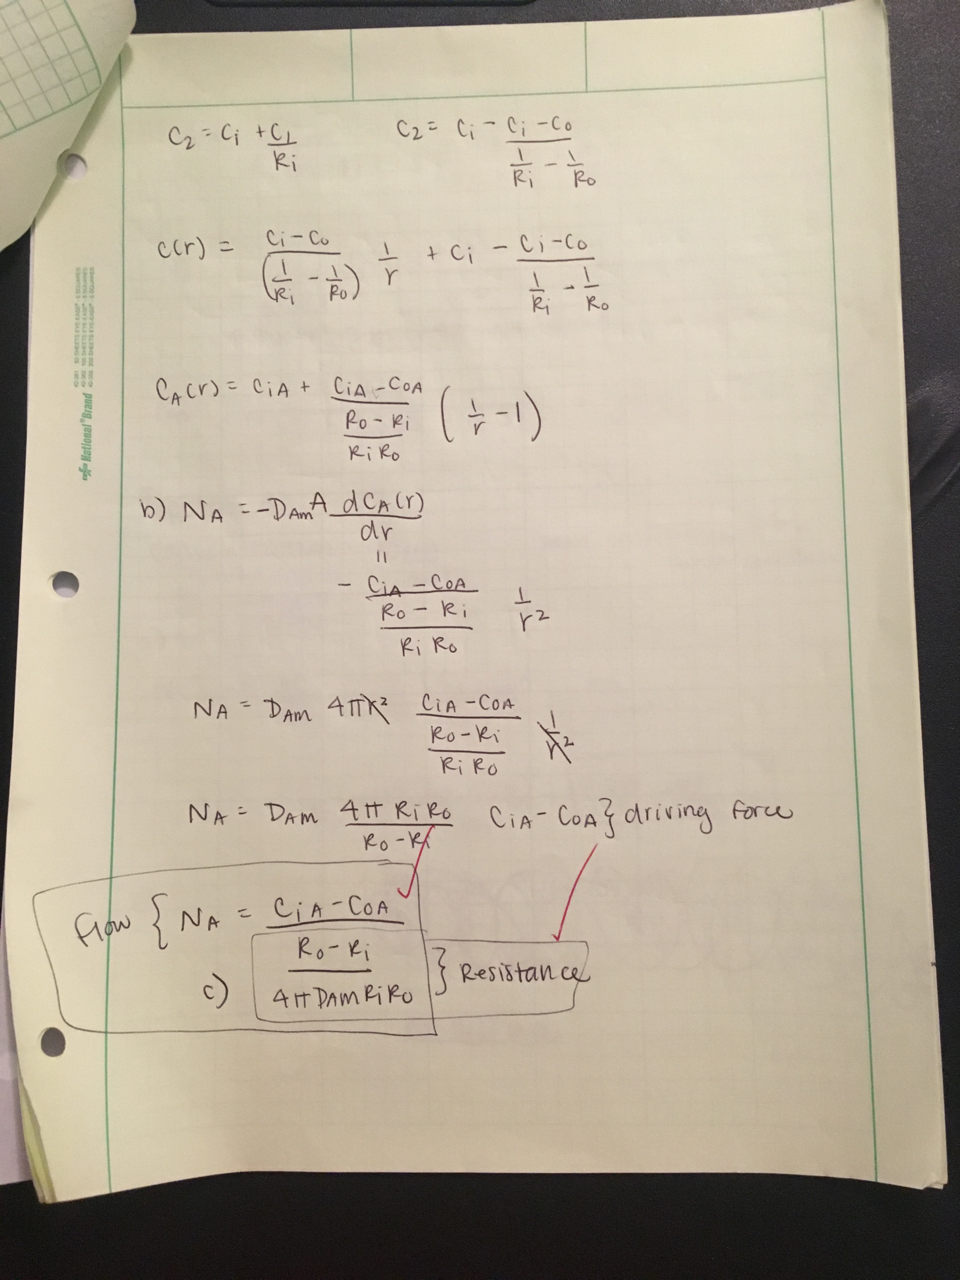 C₂ = Ci + C₁/Ri    C₂ = Ci - (Ci - Co)/(1/Ri - 1/Ro)
C(r) = (Ci - Co)/(1/Ri - 1/Ro) 1/r + Ci - (Ci - Co)/(1/Ri - 1/Ro)
CA(r) = CiA + (CiA - CoA)/((Ro - Ri)/(Ri Ro)) (1/r - 1)
b) NA = -DAm A dCA(r)/dr
=
- (CiA - CoA)/((Ro - Ri)/(Ri Ro)) 1/r²
NA = DAm 4πr² (CiA - CoA)/((Ro - Ri)/(Ri Ro)) 1/r²
NA = DAm (4π Ri Ro)/(Ro - Ri) CiA - CoA } driving force
Flow { NA = (CiA - CoA)/((Ro - Ri)/(4π DAm Ri Ro)) } Resistance
c)
National® Brand